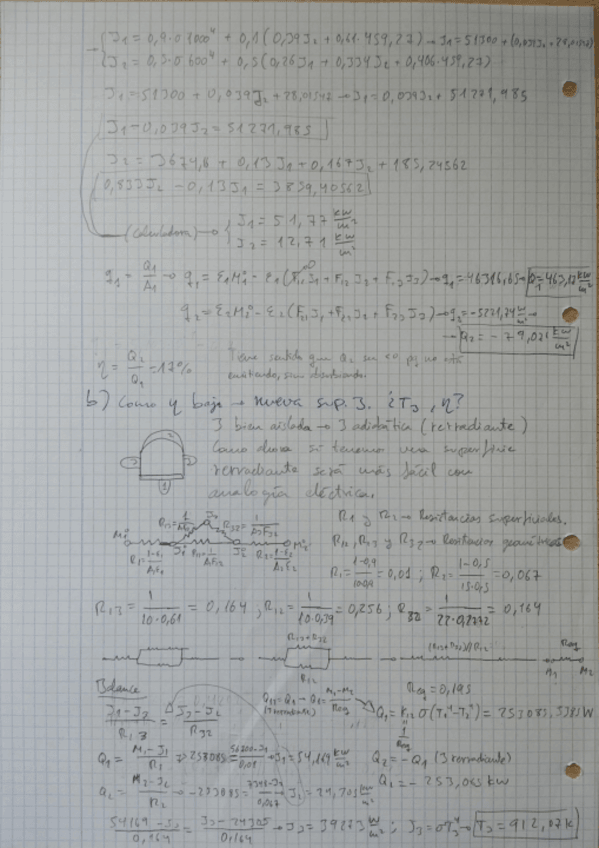 J₁ = 0,9·σ·1000⁴ + 0,1(0,39J₂ + 0,61·459,27) → J₁ = 51300 + (0,039J₂ + 28,01547)
J₂ = 0,5·σ·600⁴ + 0,5(0,26J₁ + 0,334J₂ + 0,406·459,27)
J₁ = 51300 + 0,039J₂ + 28,01548 → J₁ = 0,039J₂ + 51271,985
J₁ - 0,039J₂ = 51271,985
J₂ = 3674,6 + 0,13J₁ + 0,167J₂ + 185,24562
0,833J₂ - 0,13J₁ = 3859,40562
(calculadora) → J₁ = 51,77 kW/m²
J₂ = 12,71 kW/m²
q₁ = Q₁/A₁ → q₁ = ε₁M₁⁰ - ε₁(F₁₁J₁ + F₁₂J₂ + F₁₃J₃) → q₁ = 46316,65 → Q₁ = 463,17 kW/m²
q₂ = ε₂M₂⁰ - ε₂(F₂₁J₁ + F₂₂J₂ + F₂₃J₃) → q₂ = -5271,74 W/m² →
→ Q₂ = -79,026 kW/m²
η = Q₂/Q₁ = 17% Tiene sentido que Q₂ sea <0 pq no está
emitiendo, sino absorbiendo.
b) Como η baja → nueva sup. 3. ¿T₃, η?
3 bien aislada → 3 adiabática (rerradiante)
Como ahora si tenemos una superficie
rerradiante será más fácil con
analogía eléctrica.
R₁ y R₂ → Resistencias superficiales.
R₁₂, R₁₃ y R₃₂ → Resistencias geométricas
R₁ = 1-0,9/10·0,9 = 0,01 ; R₂ = 1-0,5/15·0,5 = 0,067
R₁₃ = 1/10·0,61 = 0,164 ; R₁₂ = 1/10·0,39 = 0,256 ; R₃₂ = 1/22·0,2772 = 0,164
R₁₃+R₃₂
R₁₂
(R₁₃+R₃₂)//R₁₂
Req
M₁ M₂
Balance
Req = 0,195
J₁-J₃/R₁₃ = J₃-J₂/R₃₂
Q₁ = 1/Req σ(T₁⁴-T₂⁴) = 253085,3385W
Q₁ = M₁-J₁/R₁ → 253085 = 56700-J₁/0,01 → J₁ = 54,169 kW/m²
Q₂ = -Q₁ (3 rerradiante)
Q₂ = M₂-J₂/R₂ → -253085 = 7348-J₂/0,067 → J₂ = 24,305 kW/m²
Q₂ = -253,085 kW
54169-J₃/0,164 = J₃-24305/0,164 → J₃ = 39237 W/m² ; J₃ = σT₃⁴ → T₃ = 912,07K